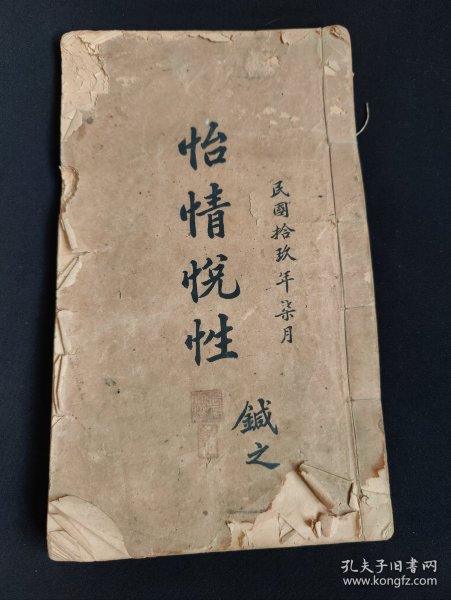 民國拾玖年柒月
怡情悅性
鍼之
孔夫子旧书网
www.kongfz.com